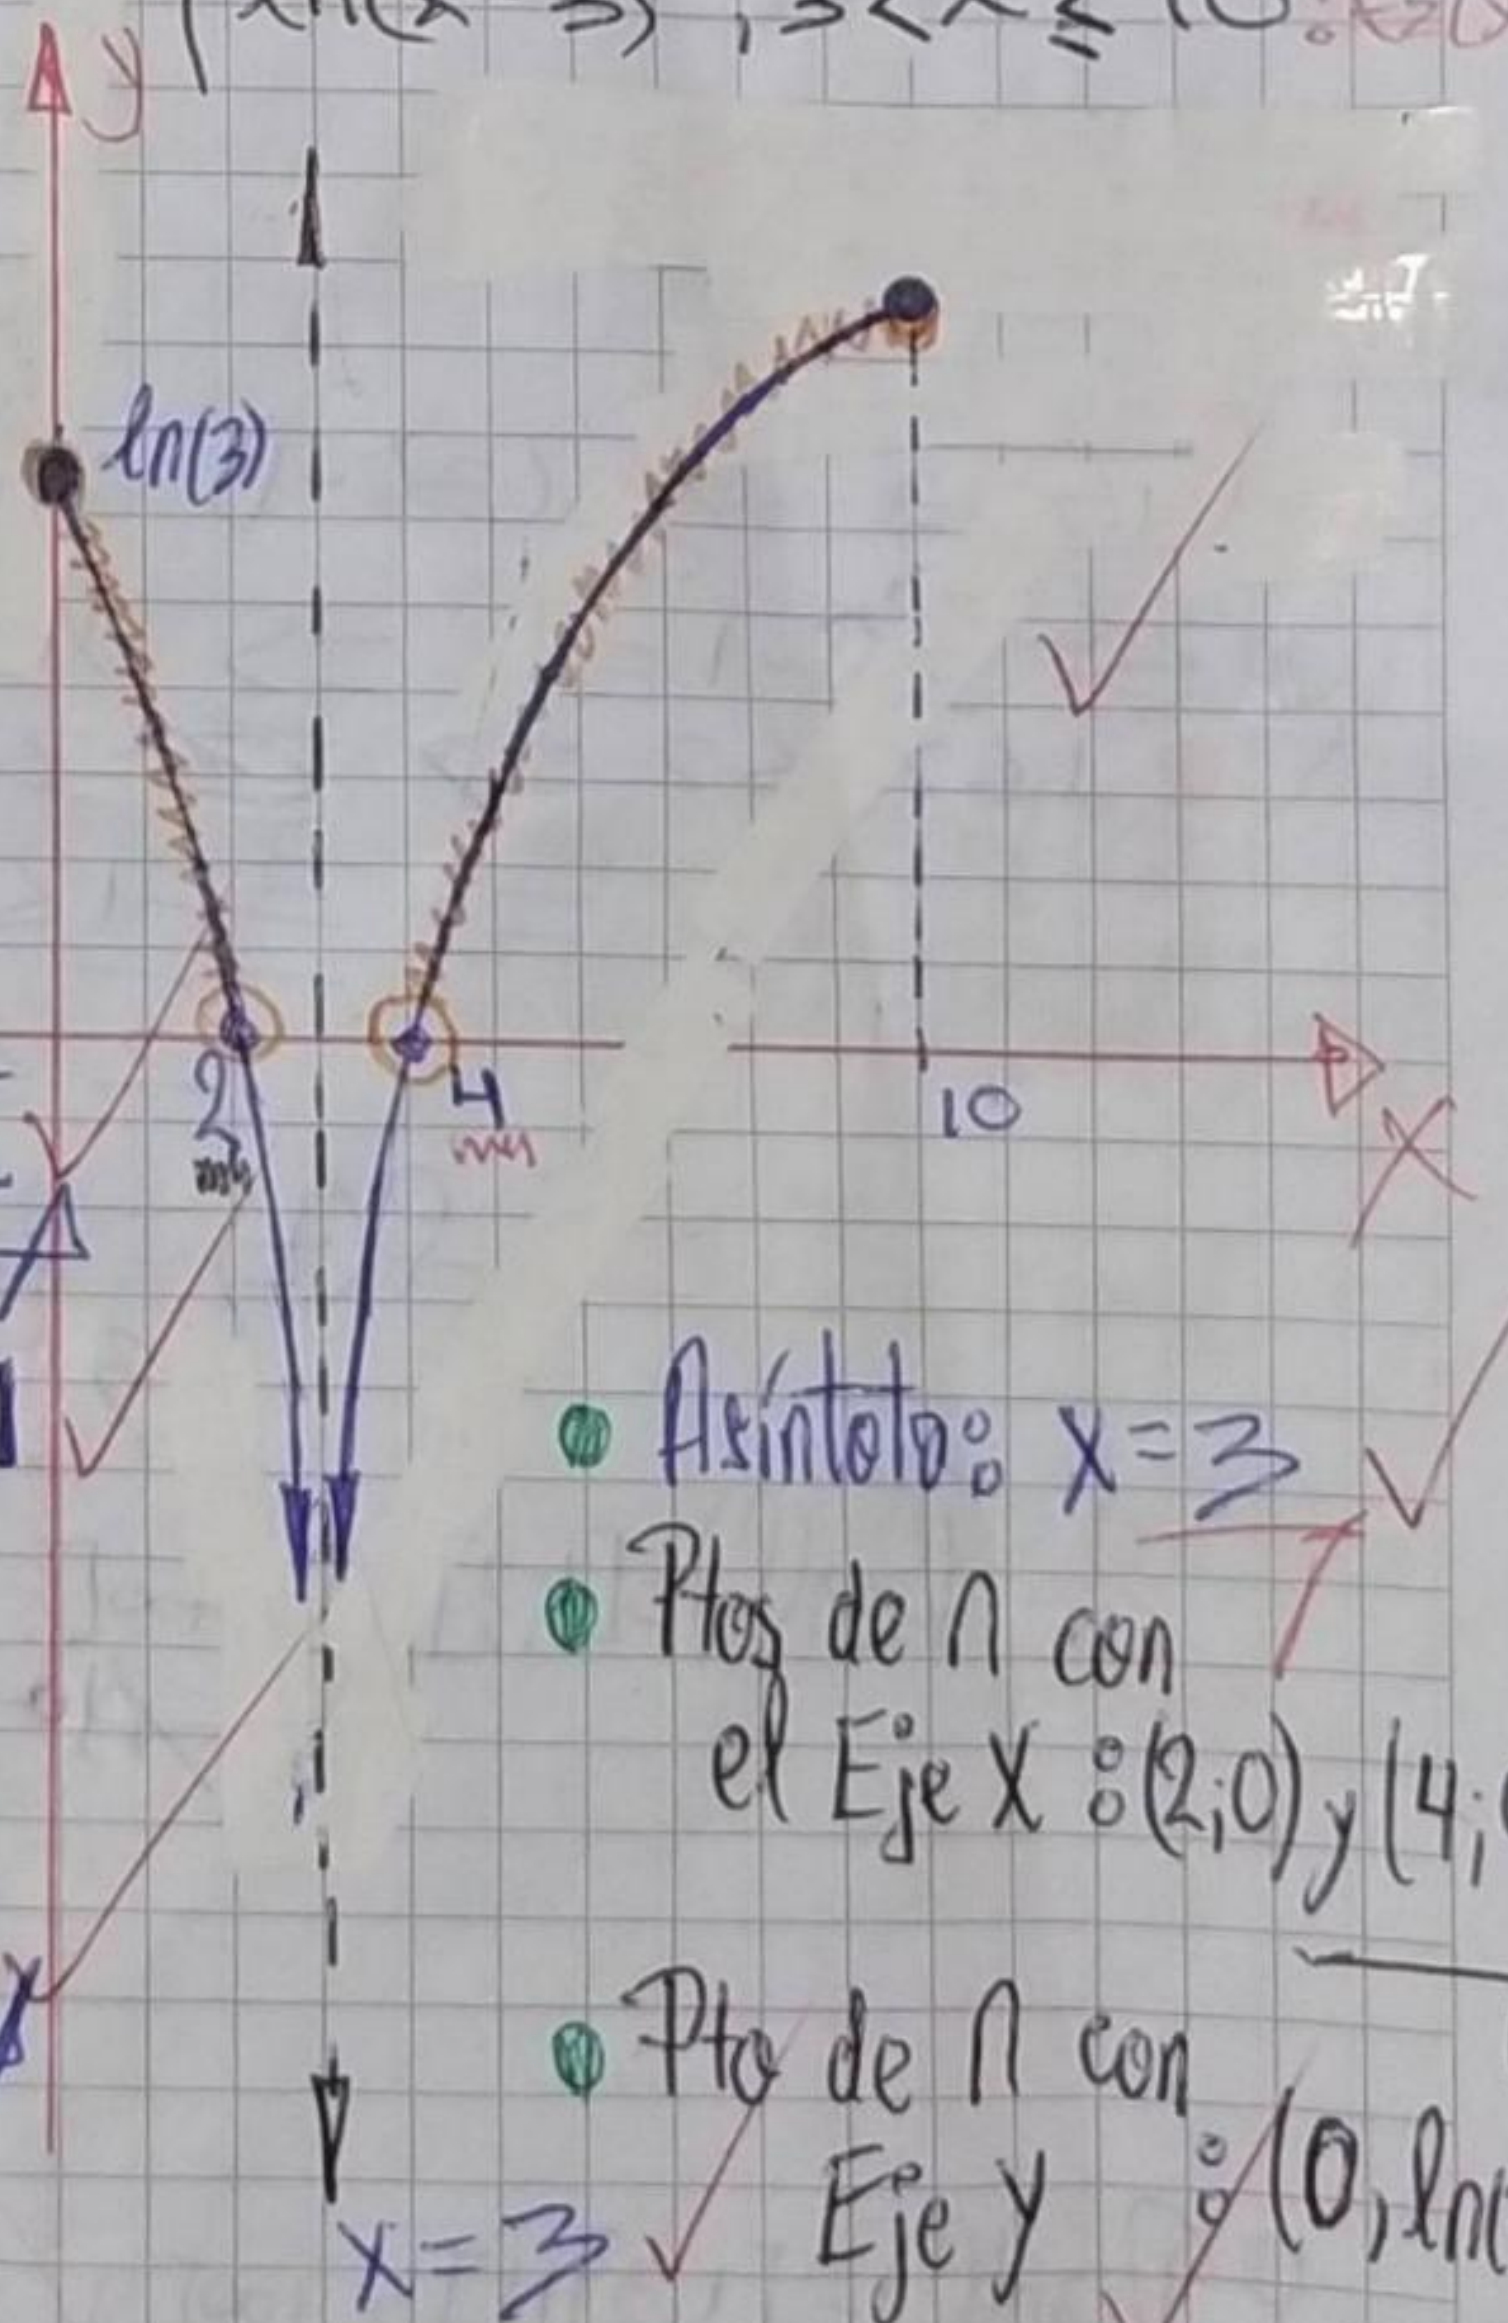 ln(x-3) , 3<x≤10
y
ln(3)
2
4
10
X
• Asíntota: x=3
• Ptos de ∩ con
el Eje X : (2;0) y (4;
• Pto de ∩ con
Eje y : (0, ln(
x=3